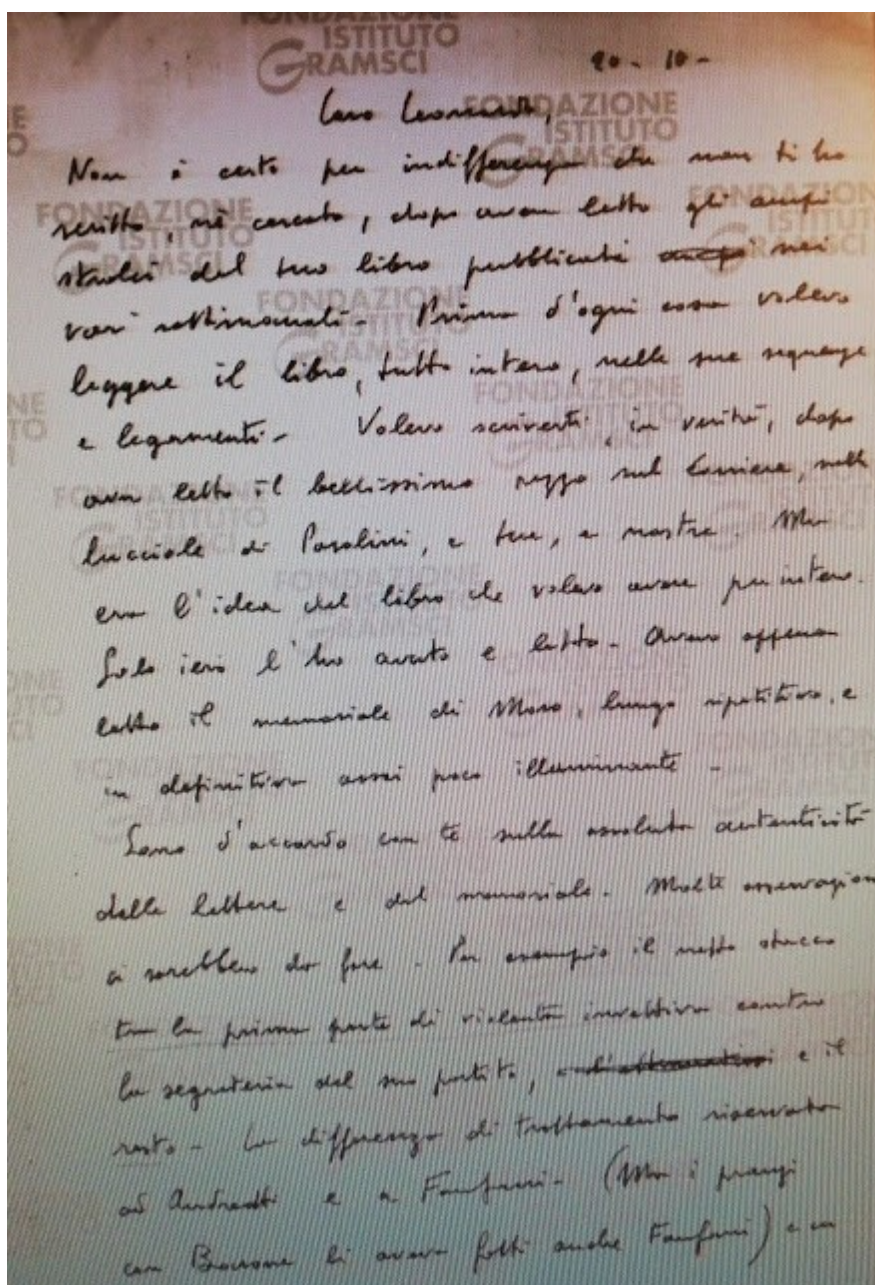 20 - 10 -
Caro Leonardo,
Non è certo per indifferenza che non ti ho
scritto, nè cercato, dopo aver letto gli ampi
stralci del tuo libro pubblicati nei
vari settimanali - Prima d'ogni cosa volevo
leggere il libro, tutto intero, nelle sue sequenze
e legamenti - Volevo scriverti, in verità, dopo
aver letto il bellissimo pezzo sul Corriere, sulle
lucciole di Pasolini, e tue, e nostre. Ma
era l'idea del libro che volevo avere per intero.
Solo ieri l'ho avuto e letto - Avevo appena
letto il memoriale di Moro, lungo ripetitivo, e
in definitiva assai poco illuminante -
Sono d'accordo con te sulla assoluta autenticità
delle lettere e del memoriale. Molte osservazioni
ci sarebbero da fare - Per esempio il netto stacco
tra la prima parte di violenta invettiva contro
la segreteria del suo partito, e il
resto - La differenza di trattamento riservata
ad Andreotti e a Fanfani - (Ma i pranzi
con Barone li aveva fatti anche Fanfani)
FONDAZIONE
ISTITUTO
GRAMSCI